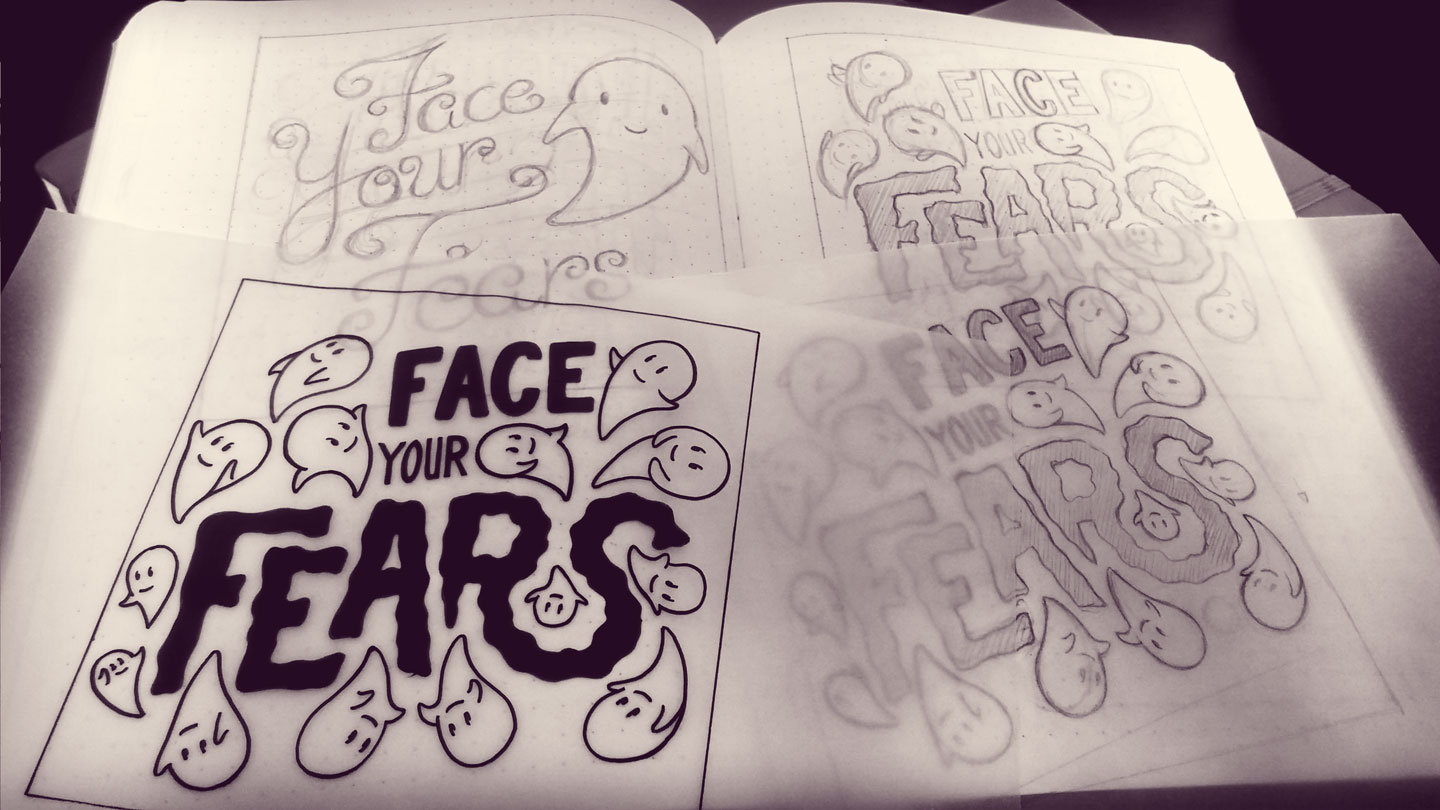 Face
Your
Fears
FACE
YOUR
FEARS
FACE
YOUR
FEARS
FACE
YOUR
FEARS